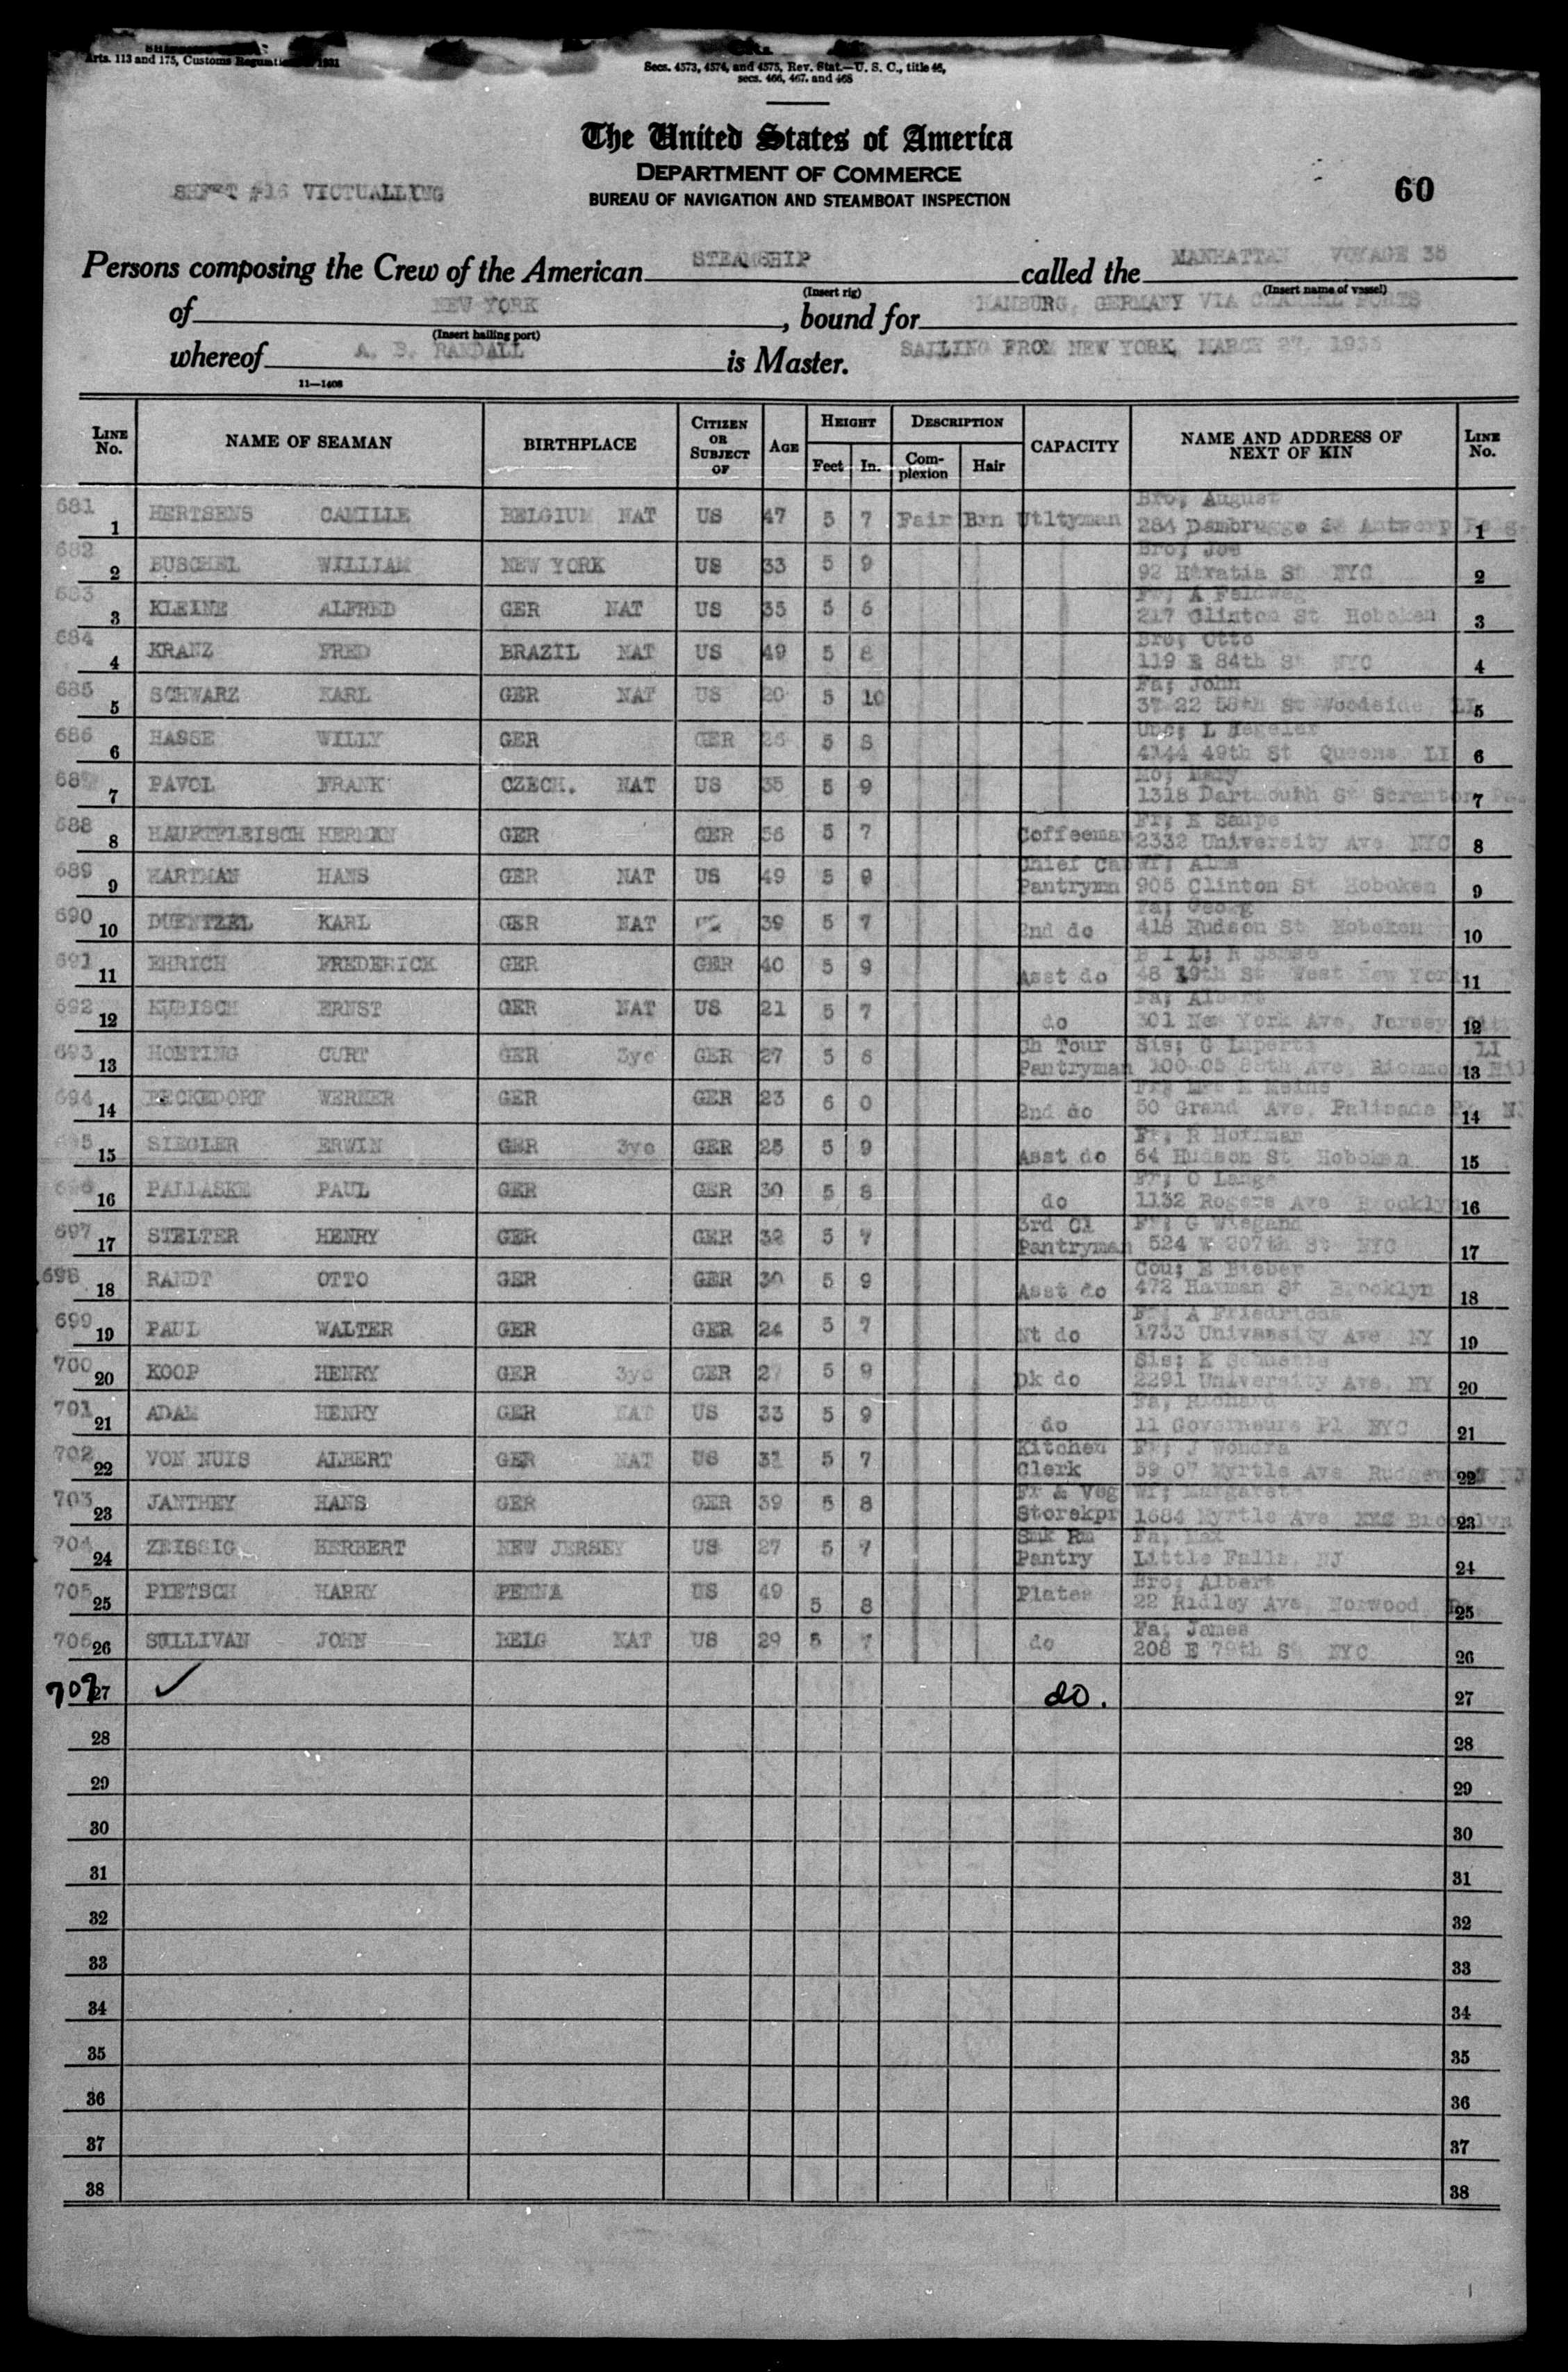 Arts. 113 and 175, Customs Regulations 1931
Secs. 4573, 4574, and 4575, Rev. Stat.—U. S. C., title 46,
secs. 466, 467, and 468
The United States of America
DEPARTMENT OF COMMERCE
BUREAU OF NAVIGATION AND STEAMBOAT INSPECTION
SHEET #16 VICTUALLYNG
60
Persons composing the Crew of the American STEAMSHIP called the MANHATTAN VOYAGE
(Insert rig) (Insert name of vessel)
of NEW YORK, bound for HAMBURG, GERMANY VIA CHANNEL PORTS
(Insert hailing port)
whereof A. B. RANDALL is Master. SAILING FROM NEW YORK, MARCH 27, 1935
11—1408
LINE No. NAME OF SEAMAN BIRTHPLACE CITIZEN OR SUBJECT OF AGE HEIGHT Feet In. DESCRIPTION Complexion Hair CAPACITY NAME AND ADDRESS OF NEXT OF KIN LINE No.
681 1 HERTSENS CAMILLE BELGIUM NAT US 47 5 7 Fair Brn Utltyman Bro; August 1
284 Dambrugge St Antwerp Belg
682 2 BUSCHEL WILLIAM NEW YORK US 33 5 9 Bro; Joe 2
92 Horatia St NYC
683 3 KLEINE ALFRED GER NAT US 35 5 6 Fr; A Feldweg 3
217 Clinton St Hoboken
684 4 KRANZ FRED BRAZIL NAT US 49 5 8 Bro; Otto 4
119 E 84th St NYC
685 5 SCHWARZ KARL GER NAT US 20 5 10 Fa; John 5
37 22 58th St Woodside, LI
686 6 HASSE WILLY GER GER 26 5 8 Unc; L Hegeler 6
4144 49th St Queens LI
687 7 PAVOL FRANK CZECH. NAT US 35 5 9 Mo; Mary 7
1318 Dartmouth St Scranton Pa
688 8 HAUPTFLEISCH HERMAN GER GER 56 5 7 Coffeeman Fr; E Saupe 8
2332 University Ave NYC
689 9 HARTMAN HANS GER NAT US 49 5 9 Chief Cab Pantrymn Wf; Alma 9
905 Clinton St Hoboken
690 10 DUENTZEL KARL GER NAT 39 5 7 2nd do Fa; Georg 10
418 Hudson St Hoboken
691 11 EHRICH FREDERICK GER GER 40 5 9 Asst do B I L; R 11
48 19th St West New York
692 12 KUBISCH ERNST GER NAT US 21 5 7 do Fa; Albert 12
301 New York Ave, Jersey City
693 13 HOETING CURT GER 3yc GER 27 5 6 Ch Tour Pantryman Sis; G Luperti LI 13
100-05 88th Ave, Richmond Hil
694 14 PECKEDORF WERNER GER GER 23 6 0 2nd do Fr; Mrs M Meins 14
50 Grand Ave, Palisade Pk, NJ
695 15 SIEGLER ERWIN GER 3yc GER 25 5 9 Asst do Fr; R Hoffman 15
64 Hudson St Hoboken
696 16 PALLASKE PAUL GER GER 30 5 8 do Fr; O Lange 16
1132 Rogers Ave Brooklyn
697 17 STELTER HENRY GER GER 32 5 7 3rd Cl Pantryman Fr; G Wiegand 17
524 W 207th St NYC
698 18 RANDT OTTO GER GER 30 5 9 Asst do Cou; E Bieber 18
472 Harman St Brooklyn
699 19 PAUL WALTER GER GER 24 5 7 Nt do Fr; A Friedrichs 19
1733 University Ave NY
700 20 KOOP HENRY GER 3yc GER 27 5 9 Dk do Sis; K Schuette 20
2291 University Ave, NY
701 21 ADAM HENRY GER NAT US 33 5 9 do Fa, Richard 21
11 Governeurs Pl NYC
702 22 VON NUIS ALBERT GER NAT US 5 7 Kitchen Clerk Fr; J Wondra 22
59 07 Myrtle Ave
703 23 JANTHEY HANS GER GER 39 5 8 Fr & Veg Storekpr Wf; Margarete 23
1684 Myrtle Ave Brooklyn
704 24 ZEISSIG HERBERT NEW JERSEY US 27 5 7 Smk Rm Pantry Fa, Max 24
Little Falls, NJ
705 25 PIETSCH HARRY PENNA US 49 5 8 Plates Bro; Albert 25
22 Ridley Ave, Norwood, Pa
706 26 SULLIVAN JOHN BELG NAT US 29 5 7 do Fa; James 26
208 E 79th St NYC
707 27 ✓ do. 27
28 28
29 29
30 30
31 31
32 32
33 33
34 34
35 35
36 36
37 37
38 38